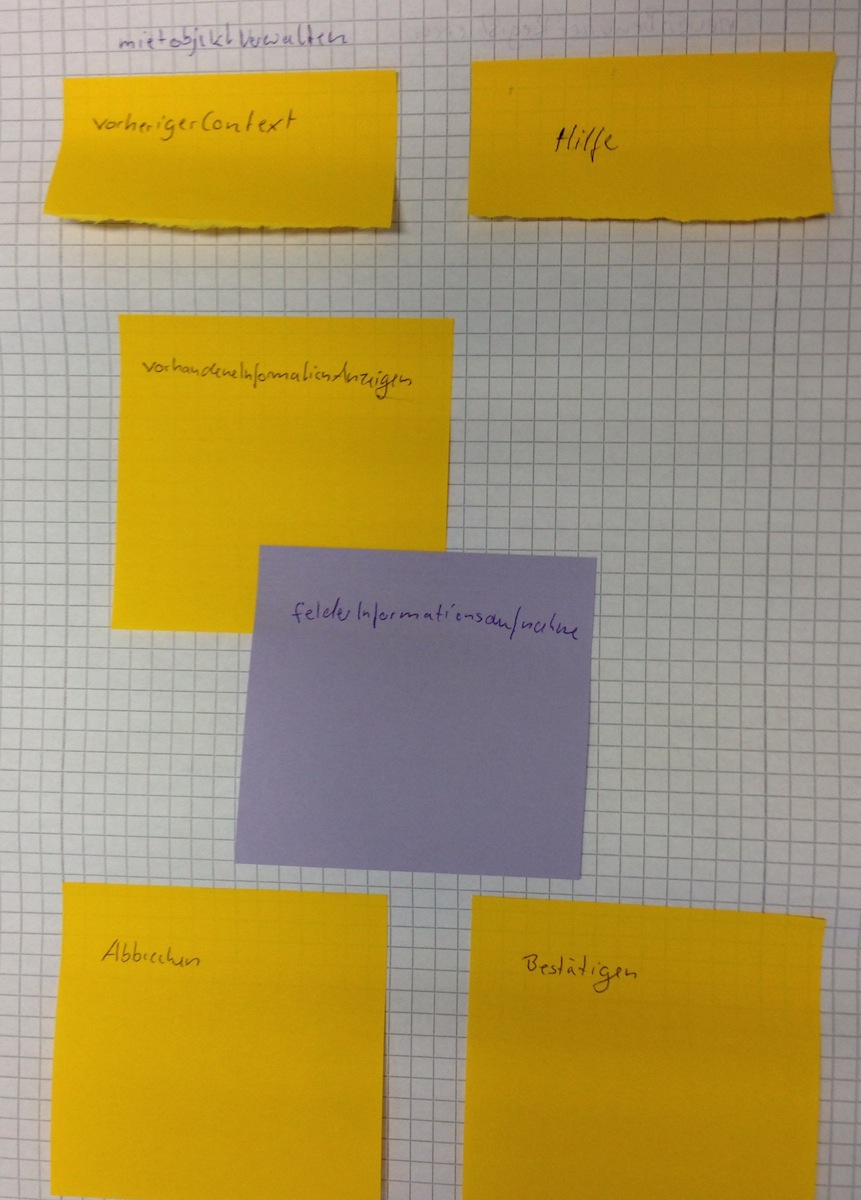 mietobjektVerwalten
vorherigerContext
Hilfe
vorhandeneInformationAnzeigen
felderInformationsaufnahme
Abbrechen
Bestätigen